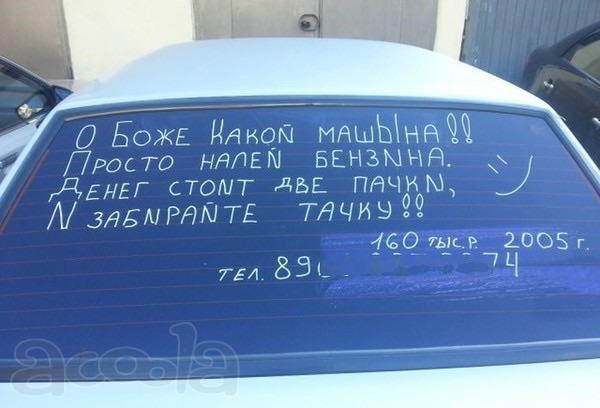 О Боже Какой машЫна!!
Просто налей бензина.
Денег стоит две пачки,
И забирайте тачку!!
160 тыс.р. 2005 г.
тел.
acoola